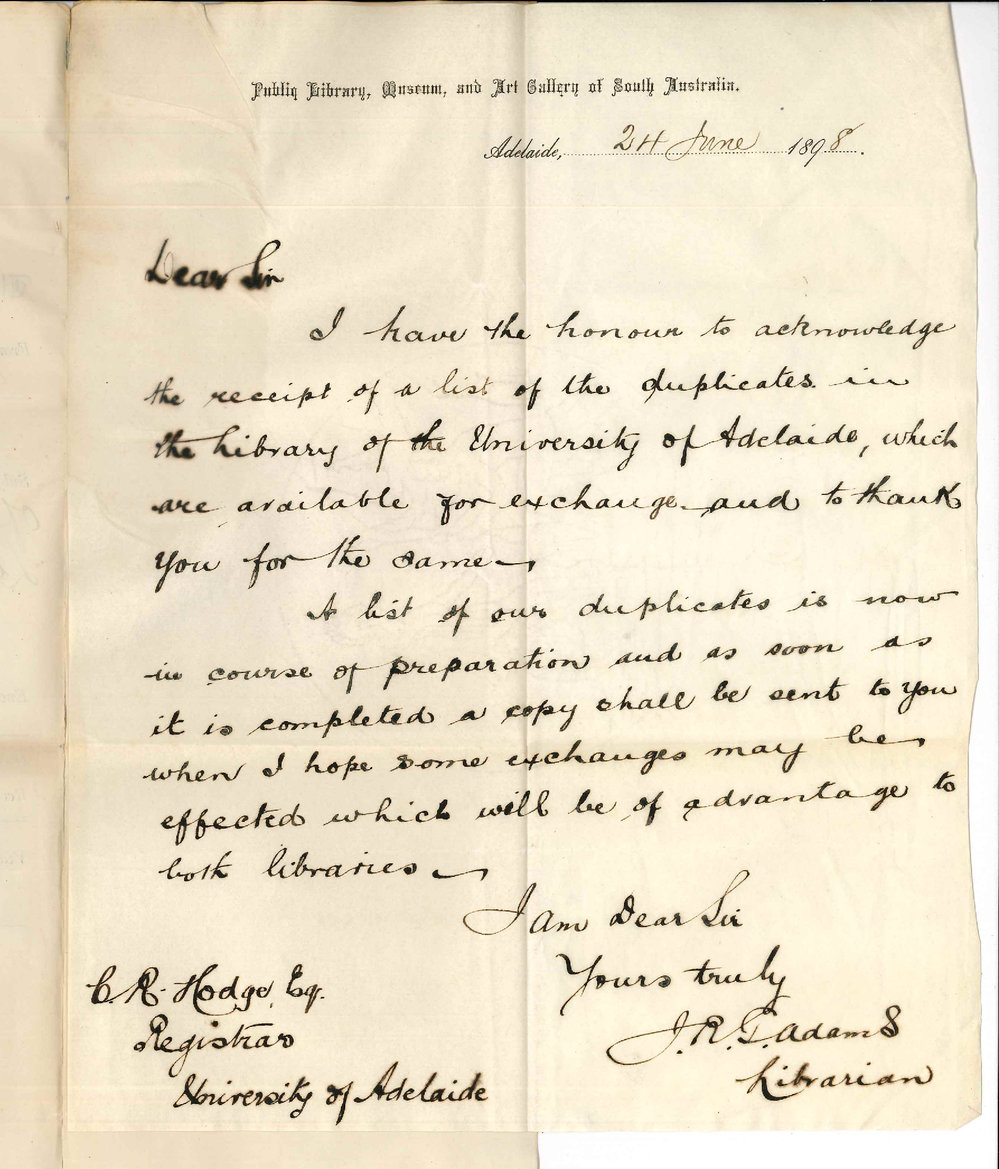 Public Library, Museum, and Art Gallery of South Australia.
Adelaide, 24 June 1898.
Dear Sir
I have the honour to acknowledge
the receipt of a list of the duplicates in
the Library of the University of Adelaide, which
are available for exchange and to thank
you for the same
A list of our duplicates is now
in course of preparation and as soon as
it is completed a copy shall be sent to you
when I hope some exchanges may be
effected which will be of advantage to
both libraries
I am Dear Sir
Yours truly
J.R.G. Adams
Librarian
C. R. Hodge, Esq.
Registrar
University of Adelaide